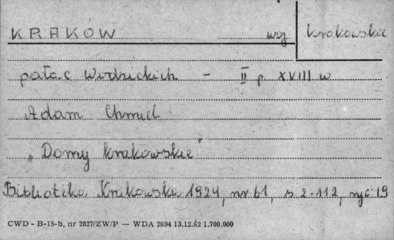 KRAKÓW woj krakowskie
pałac Wodzickich - II p XVIII w
Adam Chmiel
"Domy krakowskie"
Biblioteka Krakowska 1924, nr 61, s 2-112, ryc 19
CWD - B-15-b, nr 2827/ZW/P — WDA 2694 13.12.62 1.700.000